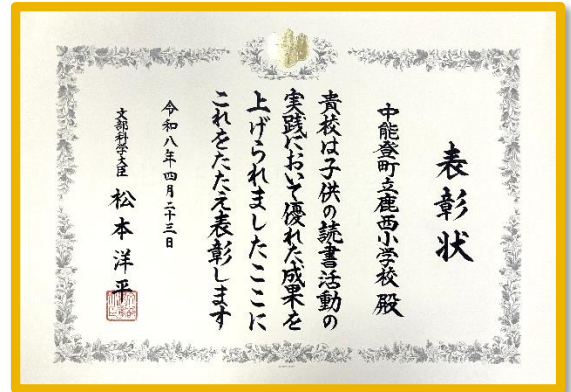 表彰状
中能登町立鹿西小学校 殿
貴校は子供の読書活動の
実践において優れた成果を
上げられましたここに
これをたたえ表彰します
令和八年四月二十三日
文部科学大臣 松本洋平